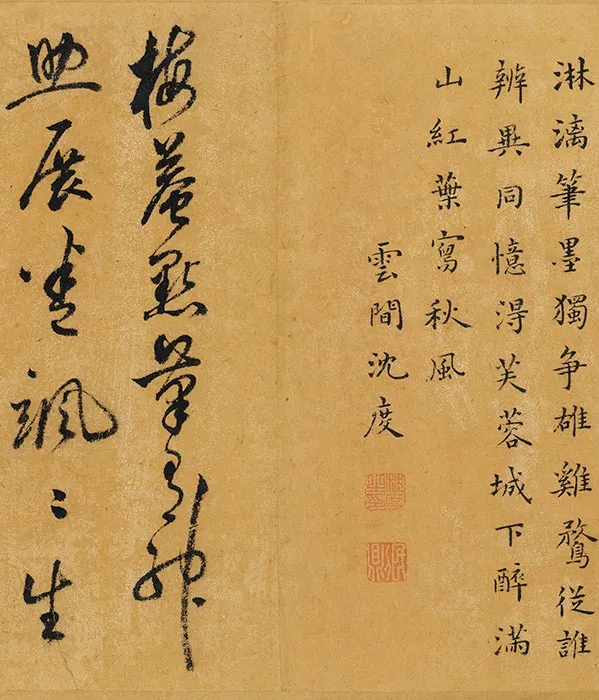 淋漓筆墨獨争雄雞鶩從誰
辨異同憶淂芙蓉城下醉滿
山紅葉寫秋風
雲間沈度
梅菴點筆有神
助展卷颯〻生